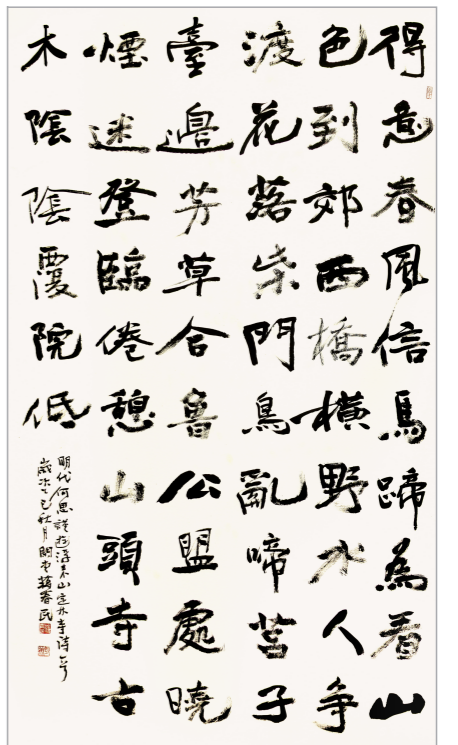 得意春風信馬蹄為看山
色到郊西橋橫野水人争
渡花落柴門鳥亂啼莒子
臺邊芳草合魯公盟處曉
煙迷登臨倦憩山頭寺古
木陰陰覆院低
明代何思謹遊浮来山定林寺詩一首
歲次乙巳秋月趙春民